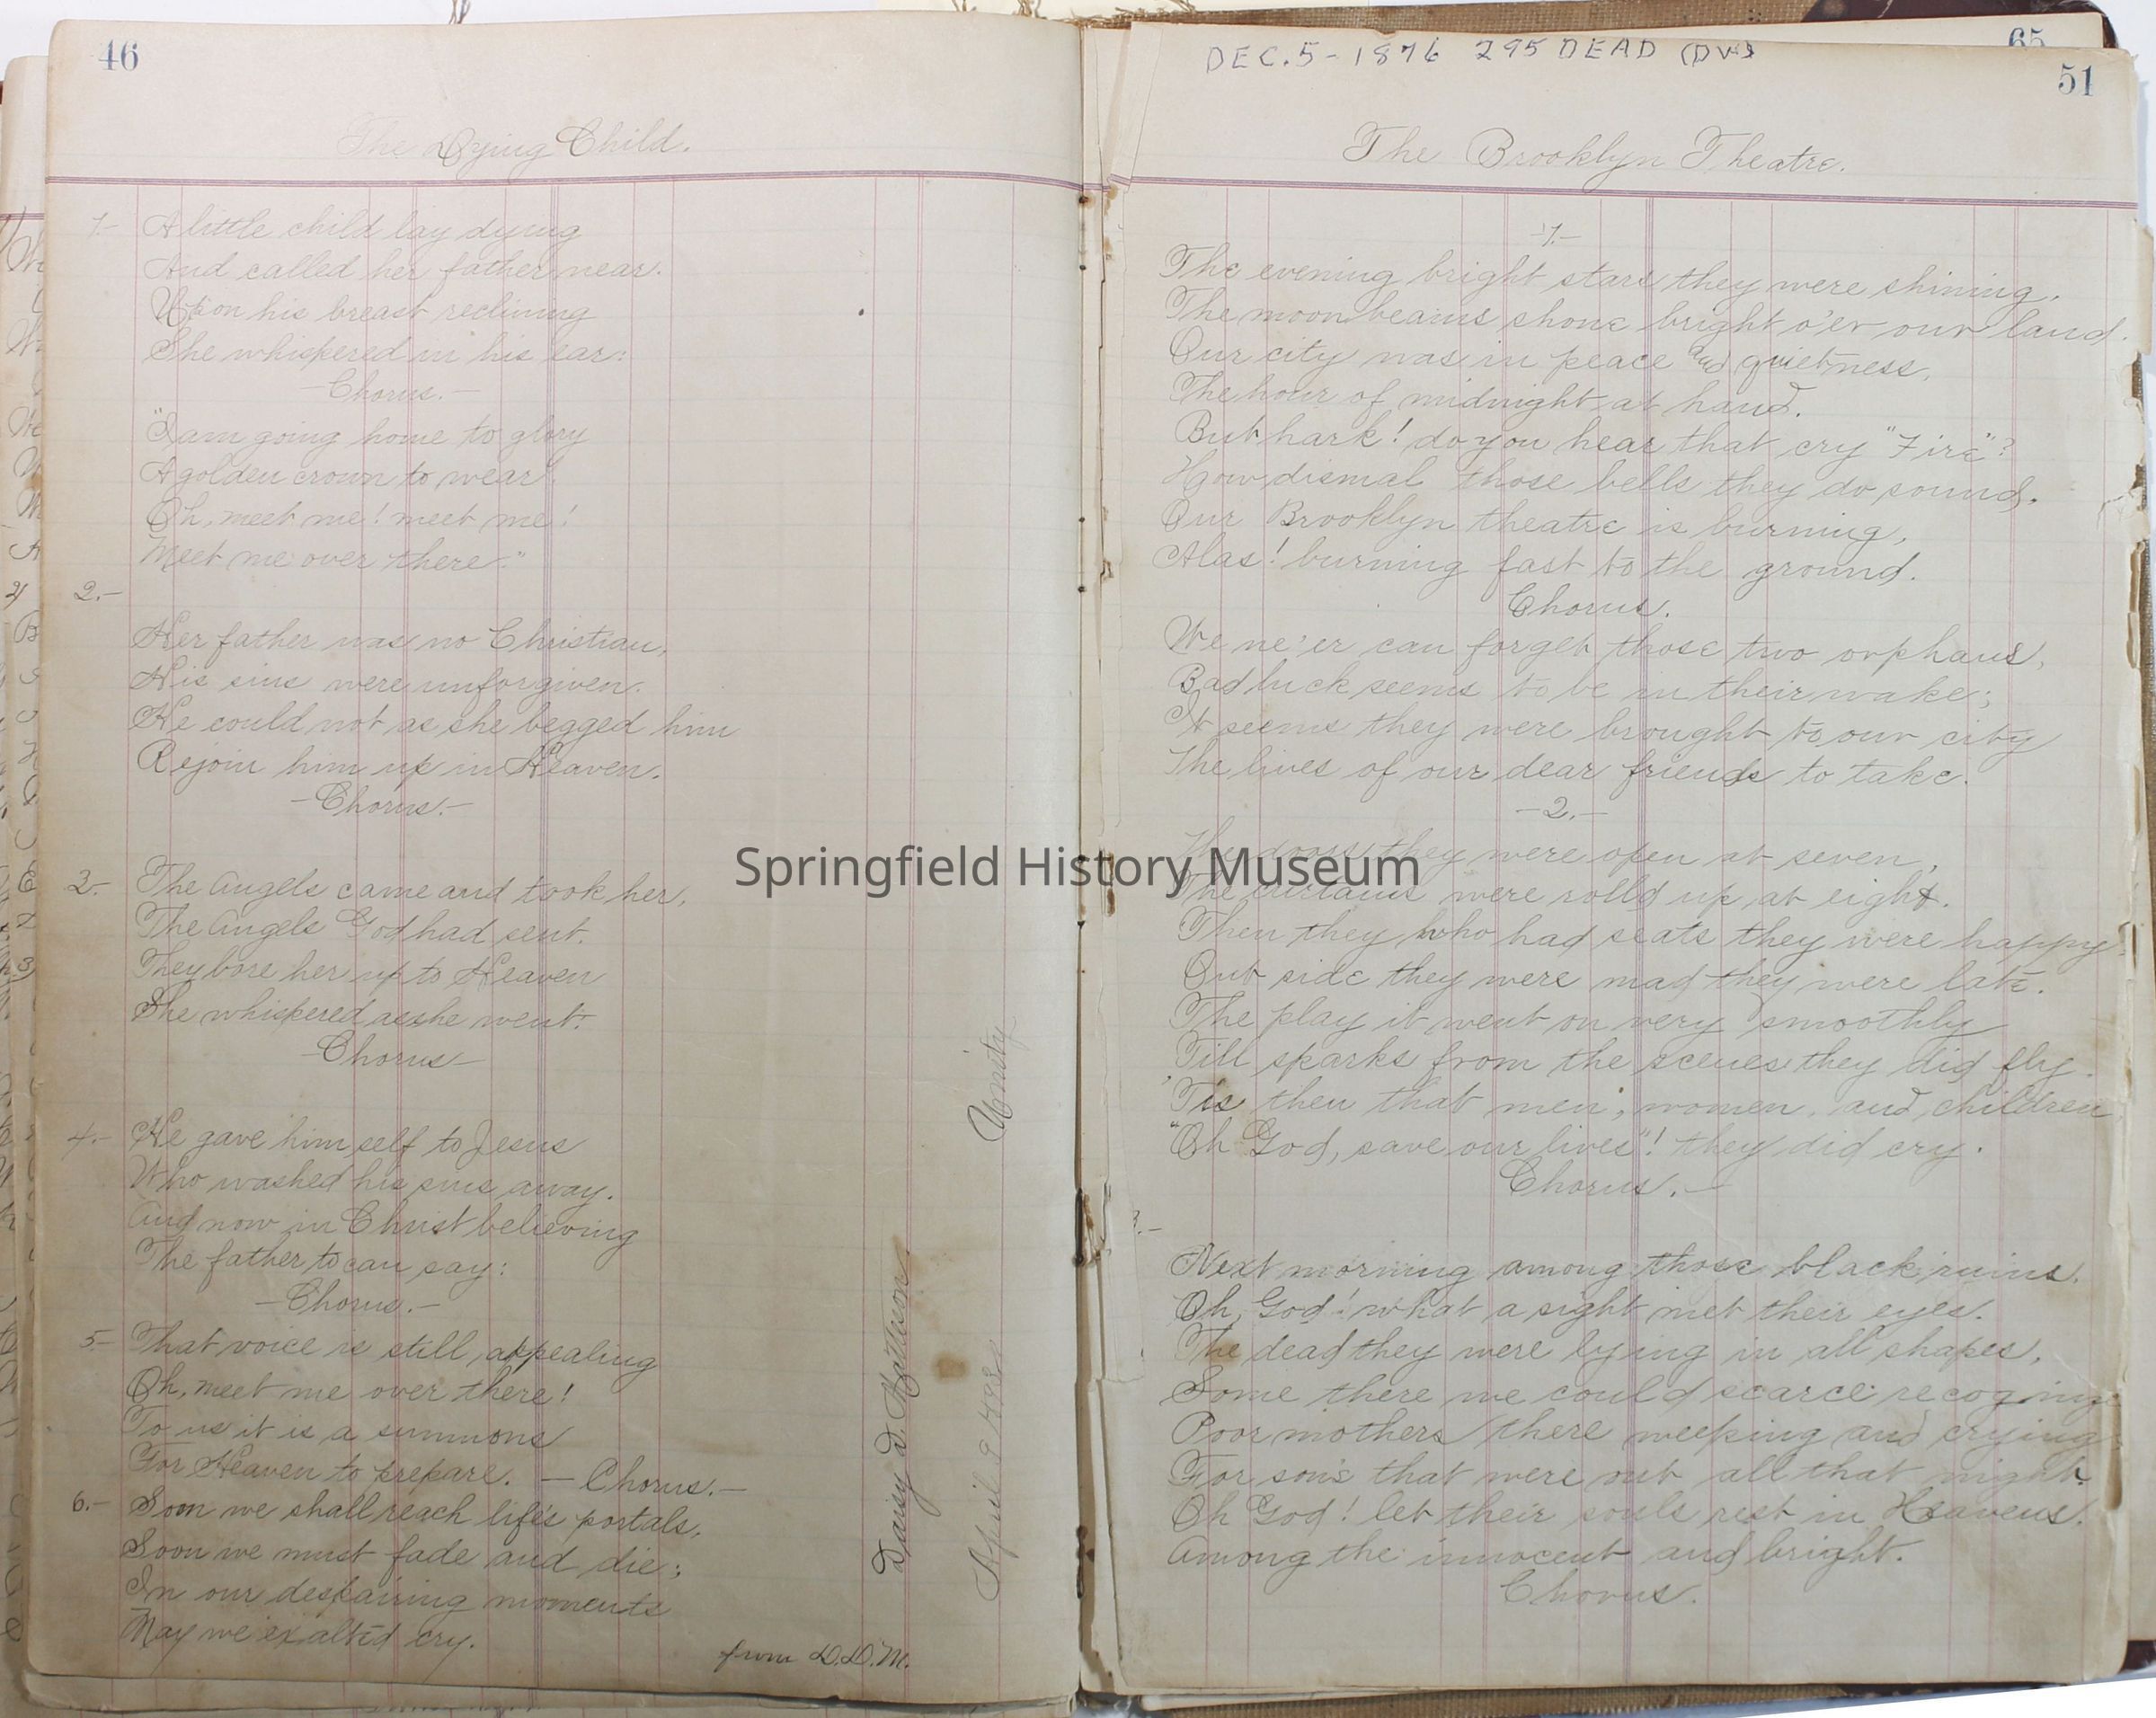 46
The Dying Child.
1.- A little child lay dying
And called her father near.
Upon his breast reclining
She whispered in his ear:
-Chorus.-
"I am going home to glory
A golden crown to wear!
Oh, meet me! meet me!
Meet me over there."
2.-
Her father was no Christian,
His sins were unforgiven.
He could not as she begged him
Rejoin him up in Heaven.
-Chorus.-
3.- The Angels came and took her,
The Angels God had sent.
They bore her up to Heaven
She whispered as she went:
-Chorus-
4.- He gave himself to Jesus
Who washed his sins away.
And now in Christ believing
The father to can say:
-Chorus.-
5.- That voice is still appealing
Oh, meet me over there!
To us it is a summons
For Heaven to prepare. - Chorus.-
6.- Soon we shall reach life's portals,
Soon we must fade and die;
In our despairing moments
May we exalted cry.
from D.D.M.
Daisy D.
April 2
Amity
65
DEC. 5 - 1876 295 DEAD (DW)
51
The Brooklyn Theatre.
-1.-
The evening bright stars they were shining,
The moon beams shone bright o'er our land.
Our city was in peace and quietness,
The hour of midnight at hand.
But hark! do you hear that cry "Fire"?
How dismal those bells they do sound.
Our Brooklyn theatre is burning,
Alas! burning fast to the ground.
Chorus.
We ne'er can forget those two orphans,
Bad luck seems to be in their wake;
It seems they were brought to our city
The lives of our dear friends to take.
-2.-
The doors they were open at seven,
The curtains were rolld up at eight.
Then they who had seats they were happy
Out side they were mad they were late.
The play it went on very smoothly
Till sparks from the scenes they did fly.
'Tis then that men, women, and children,
"Oh God, save our lives"! they did cry.
Chorus.-
3.-
Next morning among those black ruins.
Oh, God! what a sight met their eyes.
The dead they were lying in all shapes,
Some there we could scarce
Poor mothers there weeping and crying
For sons that were out all that night.
Oh God! let their souls rest in Heavens.
Among the innocent and bright.
Chorus.
Springfield History Museum